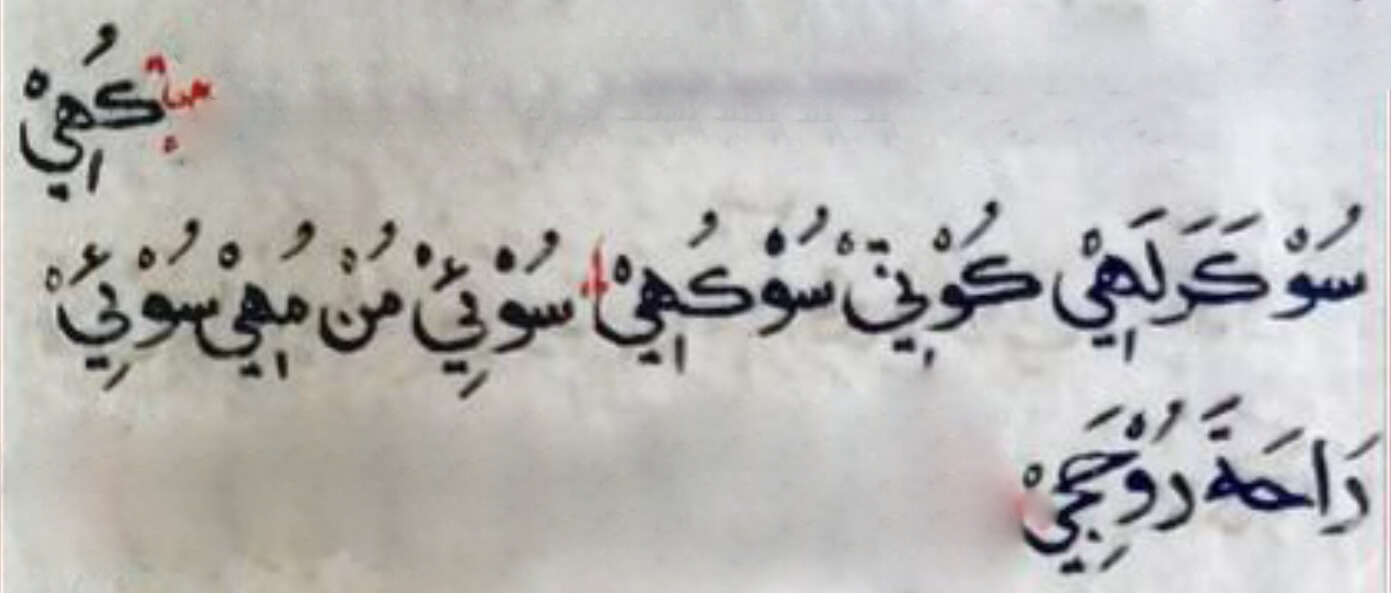 كُهِيْ
سُوْ كَرَلَهِيْ كُوْنِيْ سُوْكُهِيْ سُوْئِيْ مُنْ مُهِيْ سُوْئِيْ
رَاحَةً رُوْحَجِيْ